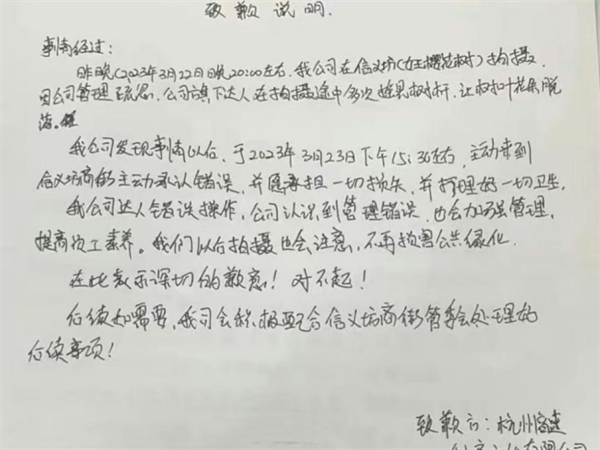 致歉说明.
事情经过:
昨晚(2023年3月22日晚20:00左右,我公司在信义坊(女王樱花树)拍摄,
因公司管理疏忽,公司旗下达人在拍摄途中多次摇晃树杆,让树叶花朵脱
落.
我公司发现事情以后,于2023年3月23日下午15:30左右,主动来到
信义坊商街主动承认错误,并愿承担一切损失,并打理好一切卫生.
我公司达人错误操作,公司认识到管理错误,也会加强管理,
提高员工素养。我们以后拍摄也会注意,不再损害公共绿化.
在此表示深切的歉意!对不起!
后续如需要,我司会积极配合信义坊商街管委会处理好
后续事项!
致歉方:杭州
有限公司